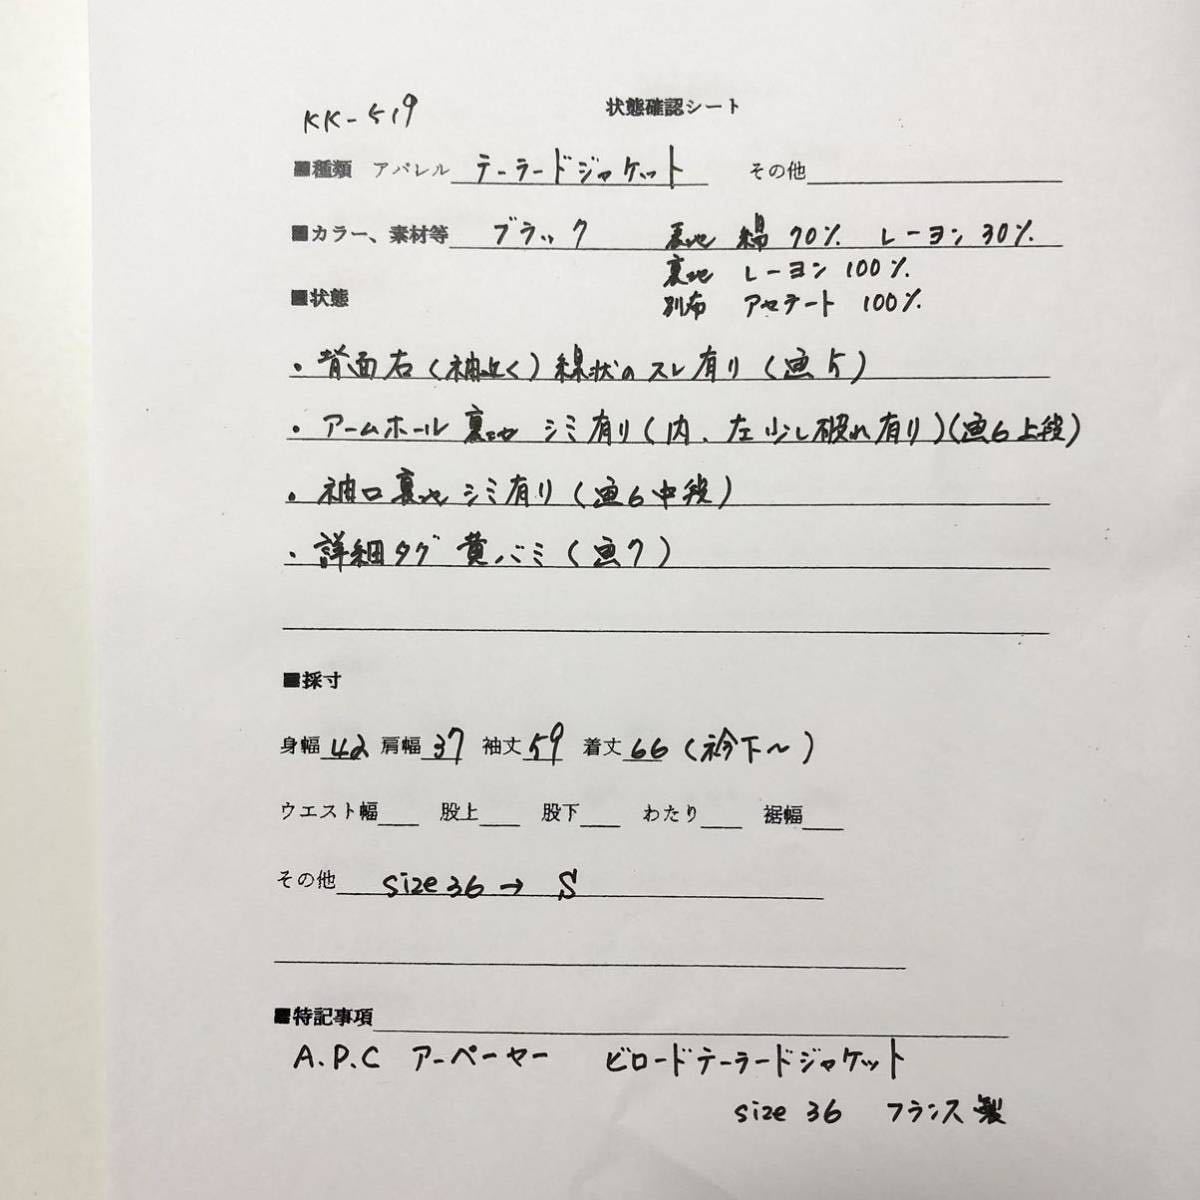 KK-519
状態確認シート
■種類 アパレル テーラードジャケット その他
■カラー、素材等 ブラック 表地 綿 70% レーヨン 30%
裏地 レーヨン 100%
■状態
別布 アセテート 100%
・背面右(袖近く)線状のスレ有り(画5)
・アームホール裏地シミ有り(内、左少し破れ有り)(画6上段)
・袖口裏地シミ有り(画6中段)
・詳細タグ黄バミ(画7)
■採寸
身幅 42 肩幅 37 袖丈 59 着丈 66 (衿下〜)
ウエスト幅 股上 股下 わたり 裾幅
その他 size 36 → S
■特記事項
A.P.C アーペーセー ビロードテーラードジャケット
size 36 フランス製